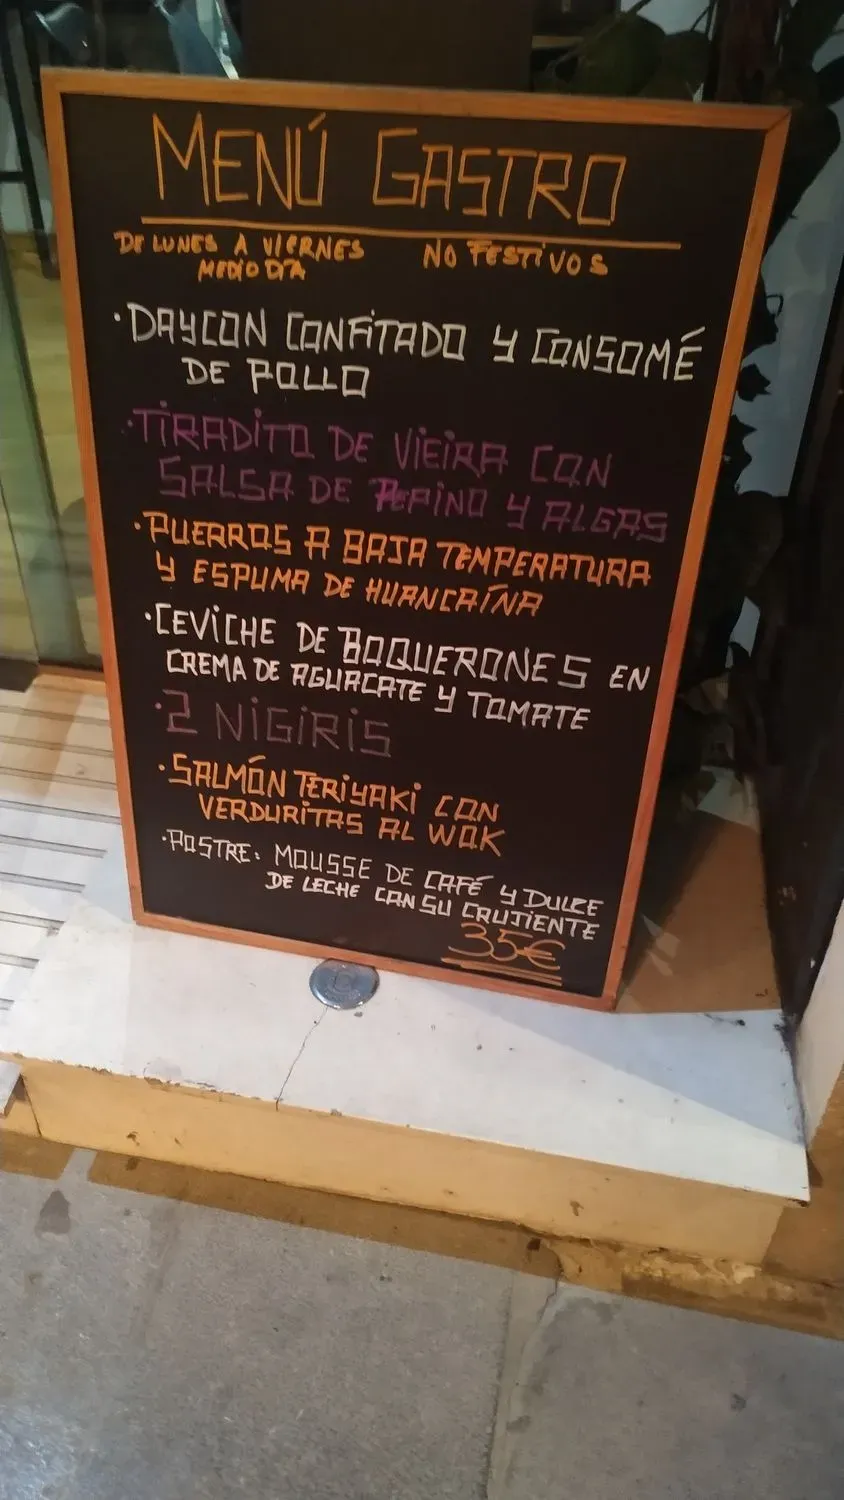 MENÚ GASTRO
DE LUNES A VIERNES NO FESTIVOS
MEDIO DÍA
·DAYCON CONFITADO Y CONSOMÉ
DE POLLO
·TIRADITO DE VIEIRA CON
SALSA DE PEPINO Y ALGAS
·PUERROS A BAJA TEMPERATURA
Y ESPUMA DE HUANCAÍNA
·CEVICHE DE BOQUERONES EN
CREMA DE AGUACATE Y TOMATE
·2 NIGIRIS
·SALMÓN TERIYAKI CON
VERDURITAS AL WOK
·POSTRE: MOUSSE DE CAFÉ Y DULCE
DE LECHE CON SU CRUJIENTE
35€